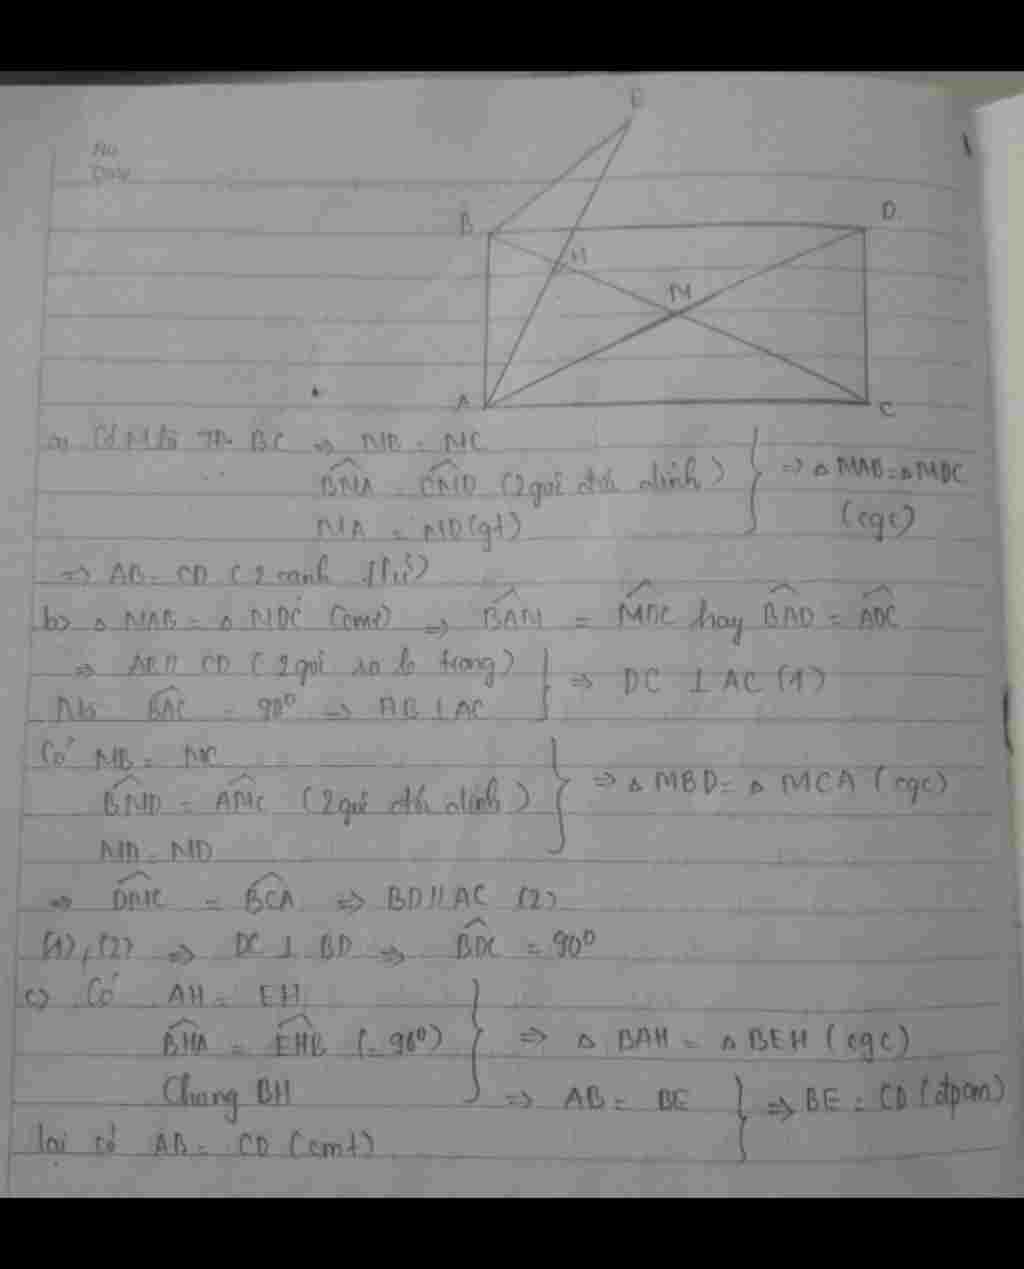 No
Day
E
B
D
H
M
A
C
a) Có M là TĐ BC => MB = MC
BMA = CMD (2 góc đối đỉnh)
MA = MD (gt)
=> △ MAB = △ MDC
(cgc)
=> AB = CD (2 cạnh t/ứ)
b) △ MAB = △ MDC (cmt) => BAM = MDC hay BAD = ADC
=> AB // CD (2 góc so le trong)
Mà BAC = 90° => AB ⊥ AC
=> DC ⊥ AC (1)
Có MB = MC
BMD = AMC (2 góc đối đỉnh)
MA = MD
=> △ MBD = △ MCA (cgc)
=> = BCA => BD // AC (2)
(1), (2) => DC ⊥ BD => BDC = 90°
c) Có AH = EH
BHA = EHB (= 90°)
Chung BH
=> △ BAH = △ BEH (cgc)
=> AB = BE
lại có AB = CD (cmt)
=> BE = CD (đpcm)